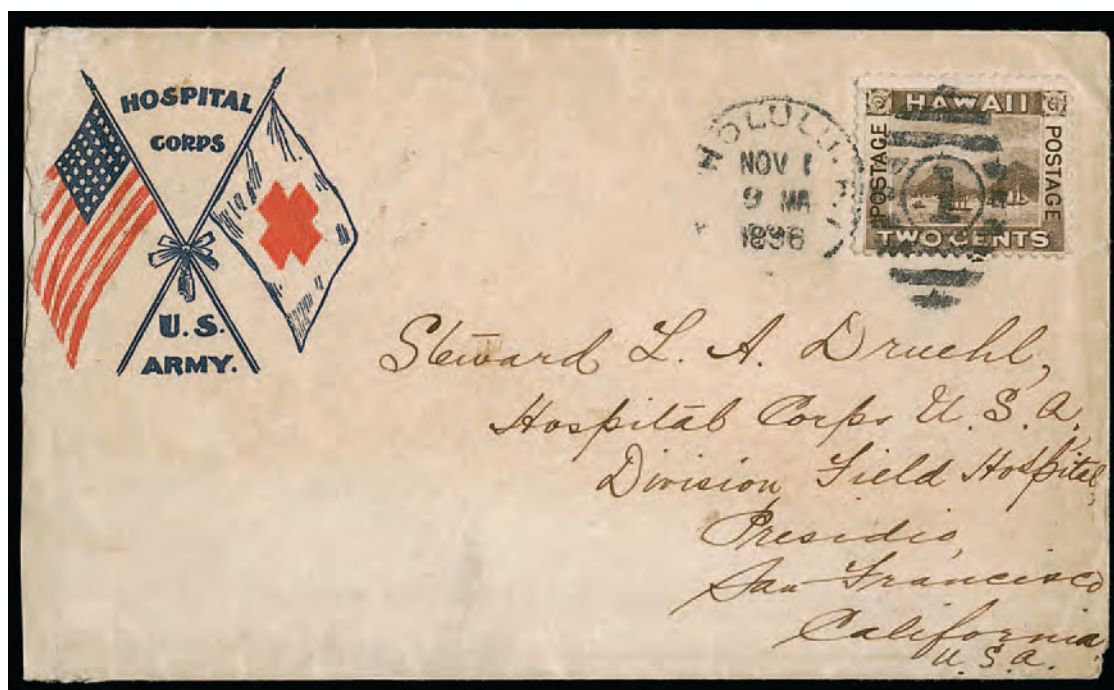 HOSPITAL
CORPS
U.S.
ARMY.
HONOLULU. H.I.
NOV 1
9 MA
1898
HAWAII
POSTAGE
POSTAGE
1
TWO CENTS
Steward L. A. Druehl,
Hospital Corps U. S. A.,
Division Field Hospital,
Presidio,
San Francisco
California,
U. S. A.